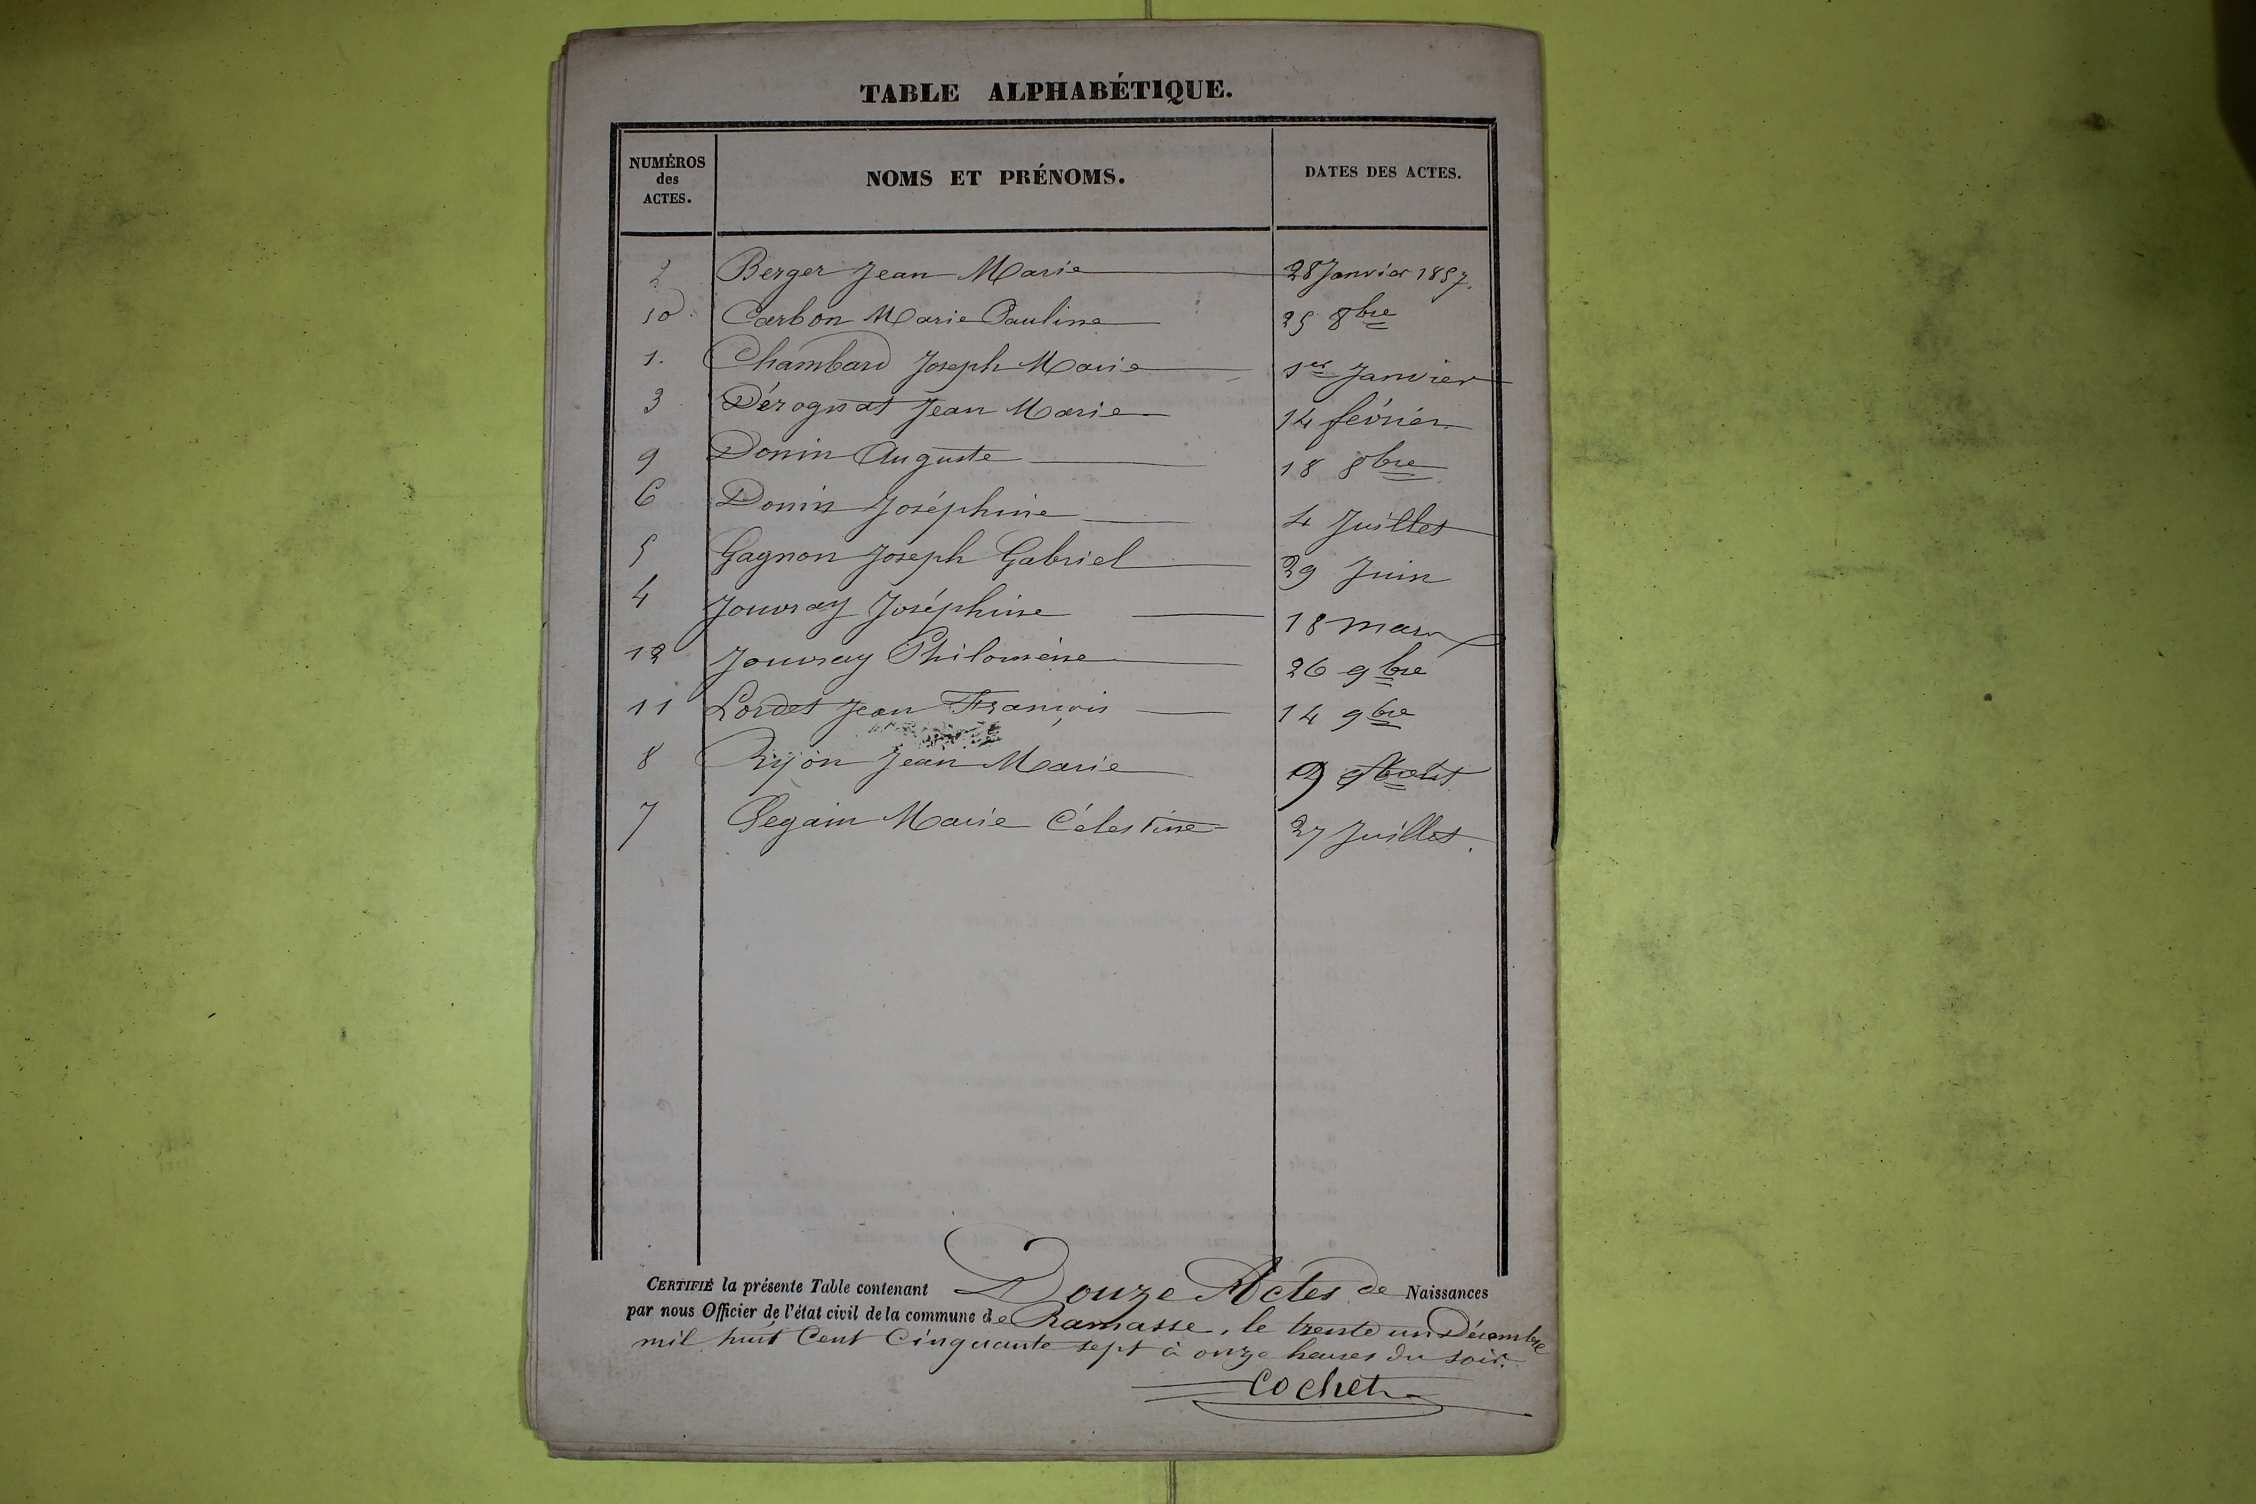 TABLE ALPHABÉTIQUE.
NUMÉROS des ACTES. NOMS ET PRÉNOMS. DATES DES ACTES.
2 Berger Jean Marie 28 Janvier 1857.
10 Carbon Marie Pauline 25 8bre
1. Chambard Joseph Marie 1er Janvier
3 Dérognat Jean Marie 14 février
9 Donin Auguste 18 8bre
6 Donin Joséphine 4 Juillet
5 Gagnon Joseph Gabriel 29 Juin
4 Jouvray Joséphine 18 mars
12 Jouvray Philomène 26 9bre
11 Lordet Jean François 14 9bre
8 Jean Marie
7 Segain Marie Célestine 27 Juillet.
CERTIFIÉ la présente Table contenant Douze Actes de Naissances
par nous Officier de l'état civil de la commune de Ramasse, le trente un Décembre
mil huit Cent Cinquante sept à onze heures du soir.
Cochet